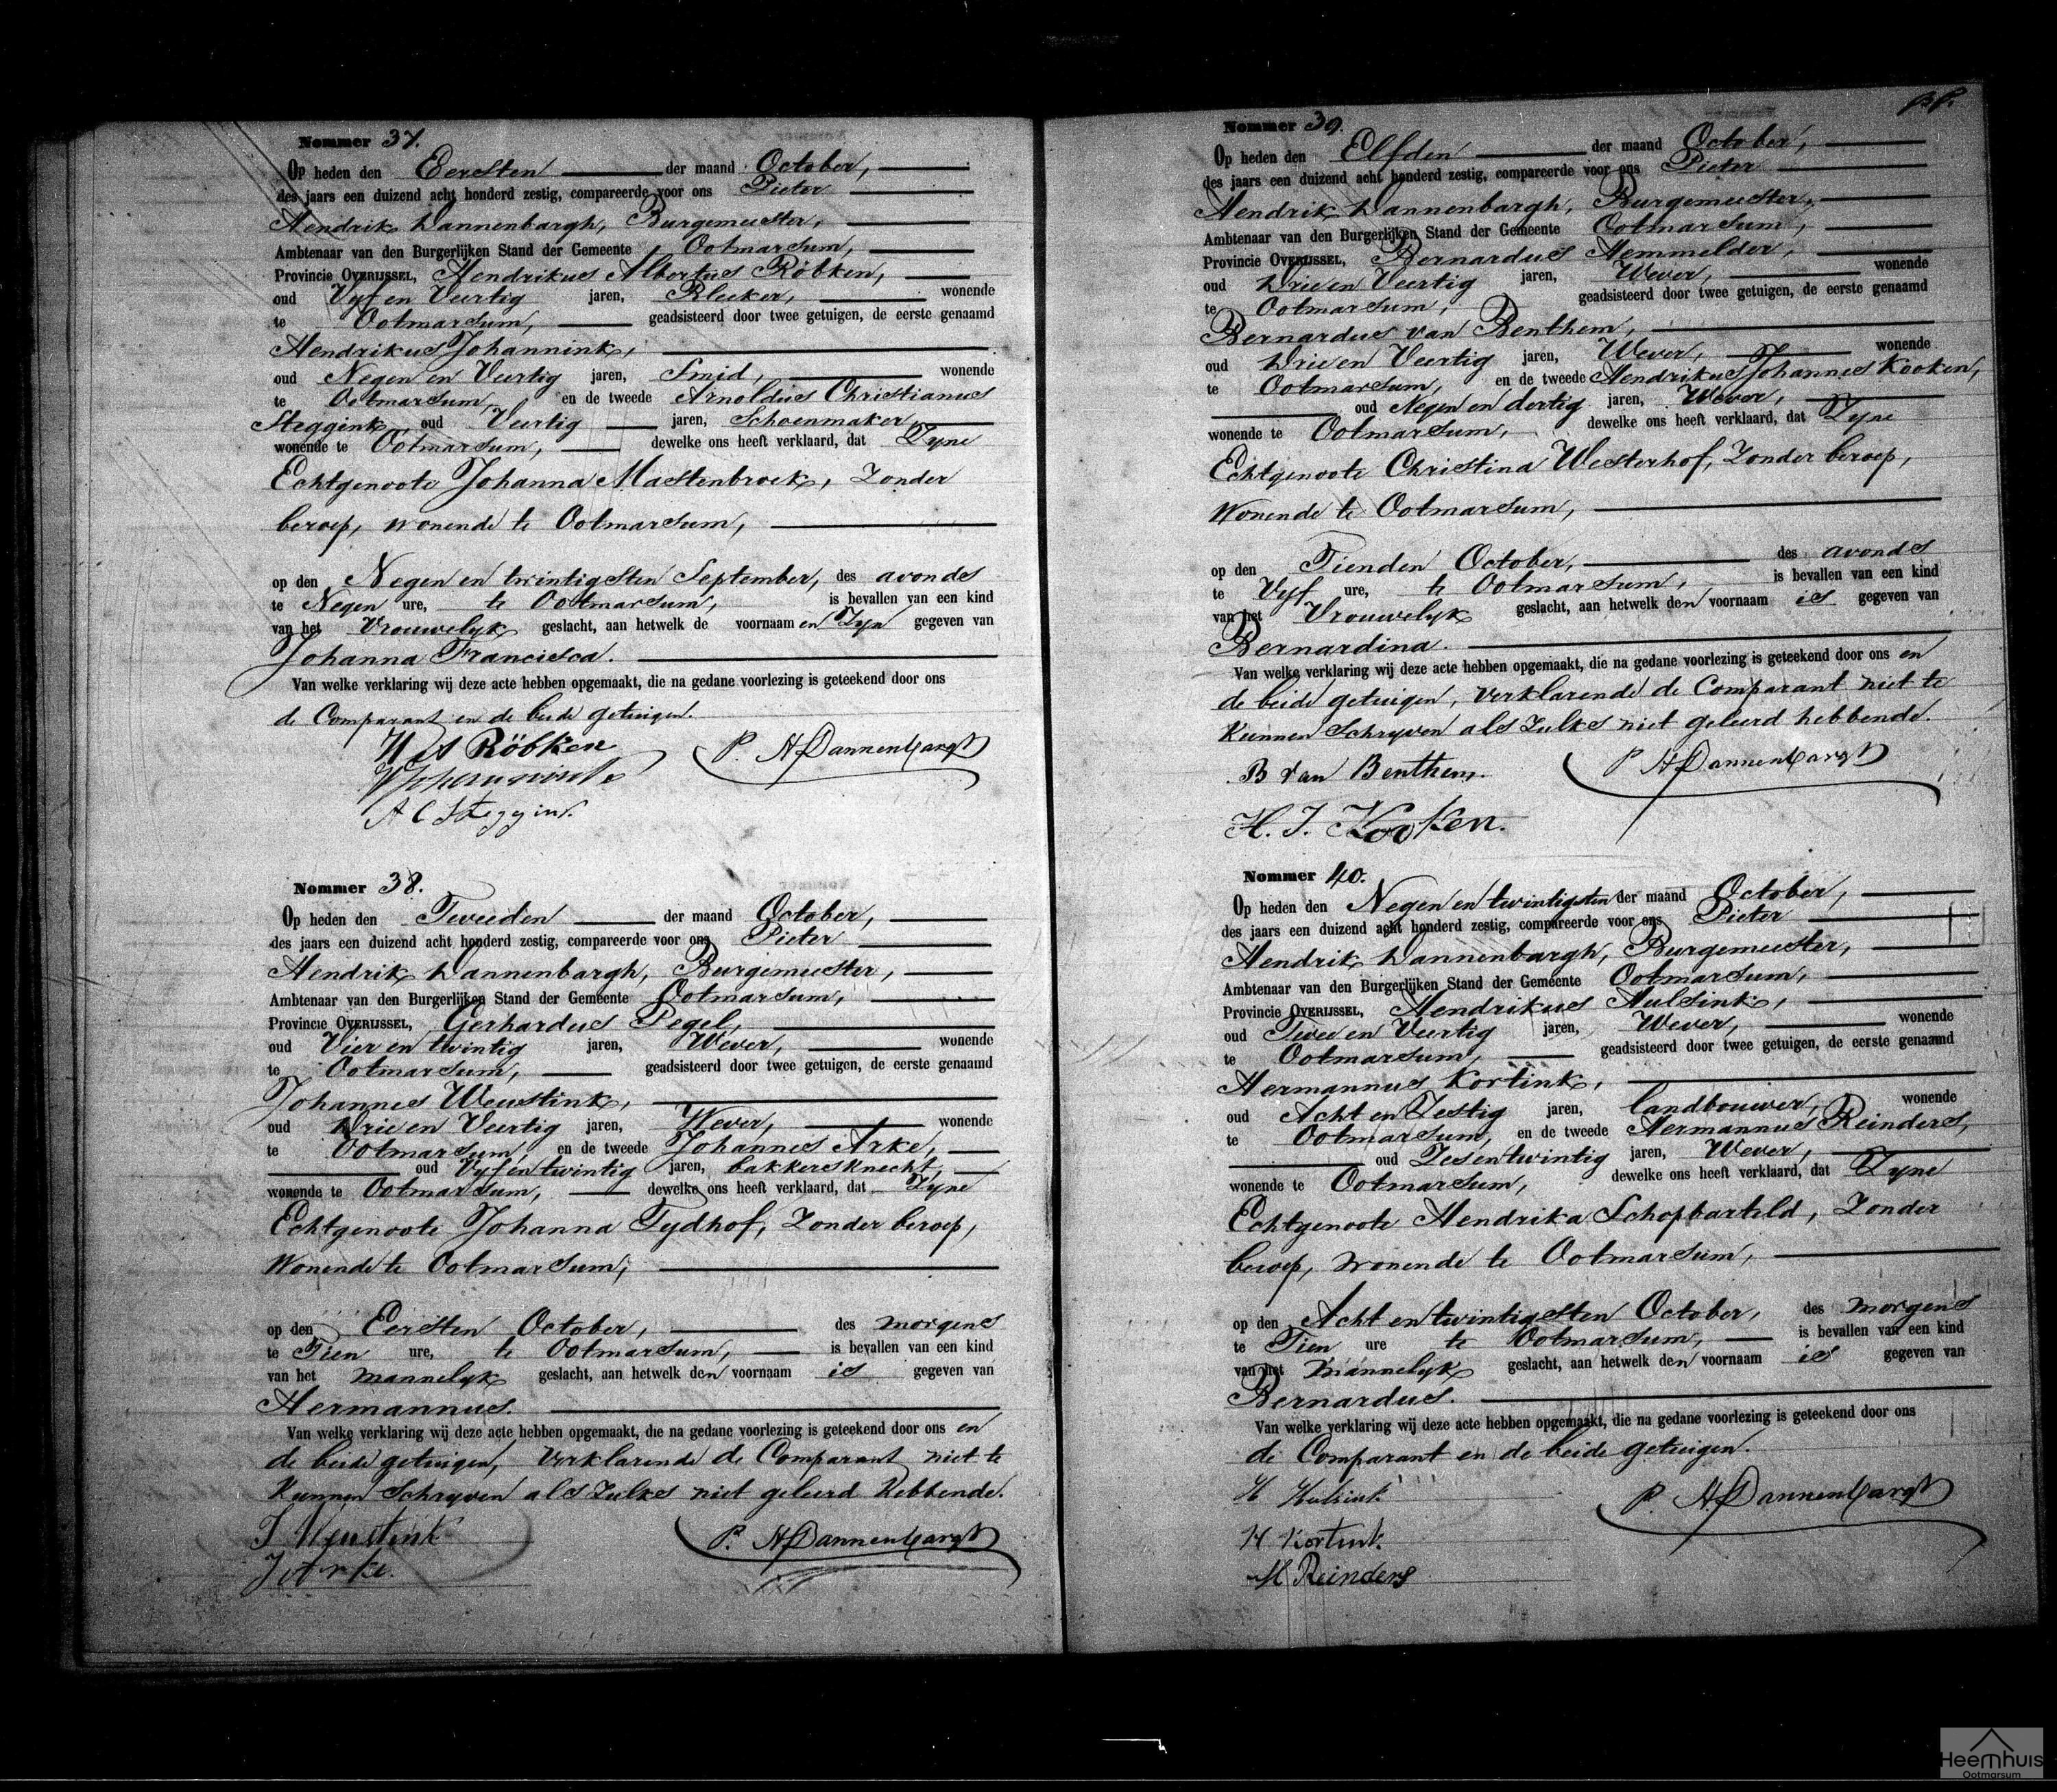 Nommer 37.
Op heden den Eersten der maand October,
des jaars een duizend acht honderd zestig, compareerde voor ons Pieter
Hendrik Dannenbargh, Burgemeester,
Ambtenaar van den Burgerlijken Stand der Gemeente Ootmarsum,
Provincie OVERIJSSEL, Hendrikus Albertus Röbken,
oud Vyf en Veertig jaren, Bleeker, wonende
te Ootmarsum, geadsisteerd door twee getuigen, de eerste genaamd
Hendrikus Johannink,
oud Negen en Veertig jaren, Smid, wonende
te Ootmarsum, en de tweede Arnoldus Christianus
Steggink, oud Veertig jaren, Schoenmaker
wonende te Ootmarsum, dewelke ons heeft verklaard, dat Zyne
Echtgenoote Johanna Mastenbroek, Zonder
beroep, wonende te Ootmarsum,
op den Negen en twintigsten September, des avonds
te Negen ure, te Ootmarsum, is bevallen van een kind
van het Vrouwelyk geslacht, aan hetwelk de voornaamen Zyn gegeven van
Johanna Francisca.
Van welke verklaring wij deze acte hebben opgemaakt, die na gedane voorlezing is geteekend door ons
de Comparant en de beide getuigen.
Röbken P. H Dannenbargh
A C Steggink
Nommer 38.
Op heden den Tweeden der maand October,
des jaars een duizend acht honderd zestig, compareerde voor ons Pieter
Hendrik Dannenbargh, Burgemeester,
Ambtenaar van den Burgerlijken Stand der Gemeente Ootmarsum,
Provincie OVERIJSSEL, Gerhardus Pegel,
oud Vier en twintig jaren, Wever, wonende
te Ootmarsum, geadsisteerd door twee getuigen, de eerste genaamd
Johannes Weustink,
oud Drie en Veertig jaren, Wever, wonende
te Ootmarsum, en de tweede Johannes Arke,
oud Vyf en twintig jaren, bakkersknecht,
wonende te Ootmarsum, dewelke ons heeft verklaard, dat Zyne
Echtgenoote Johanna Tydhof, Zonder beroep,
Wonende te Ootmarsum,
op den Eersten October, des morgens
te Tien ure, te Ootmarsum, is bevallen van een kind
van het mannelyk geslacht, aan hetwelk den voornaam is gegeven van
Hermannus.
Van welke verklaring wij deze acte hebben opgemaakt, die na gedane voorlezing is geteekend door ons en
de beide getuigen, Verklarende de Comparant niet te
Kunnen Schryven als Zulks niet geleerd hebbende.
J Weustink P. H Dannenbargh
J Arke.
Nommer 39.
Op heden den Elfden der maand October,
des jaars een duizend acht honderd zestig, compareerde voor ons Pieter
Hendrik Dannenbargh, Burgemeester,
Ambtenaar van den Burgerlijken Stand der Gemeente Ootmarsum,
Provincie OVERIJSSEL, Bernardus Hemmelder,
oud Drie en Veertig jaren, Wever, wonende
te Ootmarsum, geadsisteerd door twee getuigen, de eerste genaamd
Bernardus van Benthem,
oud Drie en Veertig jaren, Wever, wonende
te Ootmarsum, en de tweede Hendrikus Johannes Kooken,
oud Negen en dertig jaren, Wever,
wonende te Ootmarsum, dewelke ons heeft verklaard, dat Zyne
Echtgenoote Christina Westerhof, Zonder beroep,
Wonende te Ootmarsum,
op den Tienden October, des avonds
te Vyf ure, te Ootmarsum, is bevallen van een kind
van het Vrouwelyk geslacht, aan hetwelk den voornaam is gegeven van
Bernardina.
Van welke verklaring wij deze acte hebben opgemaakt, die na gedane voorlezing is geteekend door ons en
de beide getuigen, Verklarende de Comparant niet te
Kunnen Schryven als Zulks niet geleerd hebbende.
B van Benthem. P H Dannenbargh
H. J. Kooken.
Nommer 40.
Op heden den Negen en twintigsten der maand October,
des jaars een duizend acht honderd zestig, compareerde voor ons Pieter
Hendrik Dannenbargh, Burgemeester,
Ambtenaar van den Burgerlijken Stand der Gemeente Ootmarsum,
Provincie OVERIJSSEL, Hendrikus Hulsink,
oud Twee en Veertig jaren, Wever, wonende
te Ootmarsum, geadsisteerd door twee getuigen, de eerste genaamd
Hermannus Kortink,
oud Acht en Zestig jaren, landbouwer, wonende
te Ootmarsum, en de tweede Hermannus Reinders,
oud Zes en twintig jaren, Wever,
wonende te Ootmarsum, dewelke ons heeft verklaard, dat Zyne
Echtgenoote Hendrika Schopbarteld, Zonder
beroep, wonende te Ootmarsum,
op den Acht en twintigsten October, des morgens
te Tien ure te Ootmarsum, is bevallen van een kind
van het mannelyk geslacht, aan hetwelk den voornaam is gegeven van
Bernardus.
Van welke verklaring wij deze acte hebben opgemaakt, die na gedane voorlezing is geteekend door ons
de Comparant en de beide getuigen.
H Hulsink P. H Dannenbargh
H Kortink
H Reinders
Heemhuis
Ootmarsum